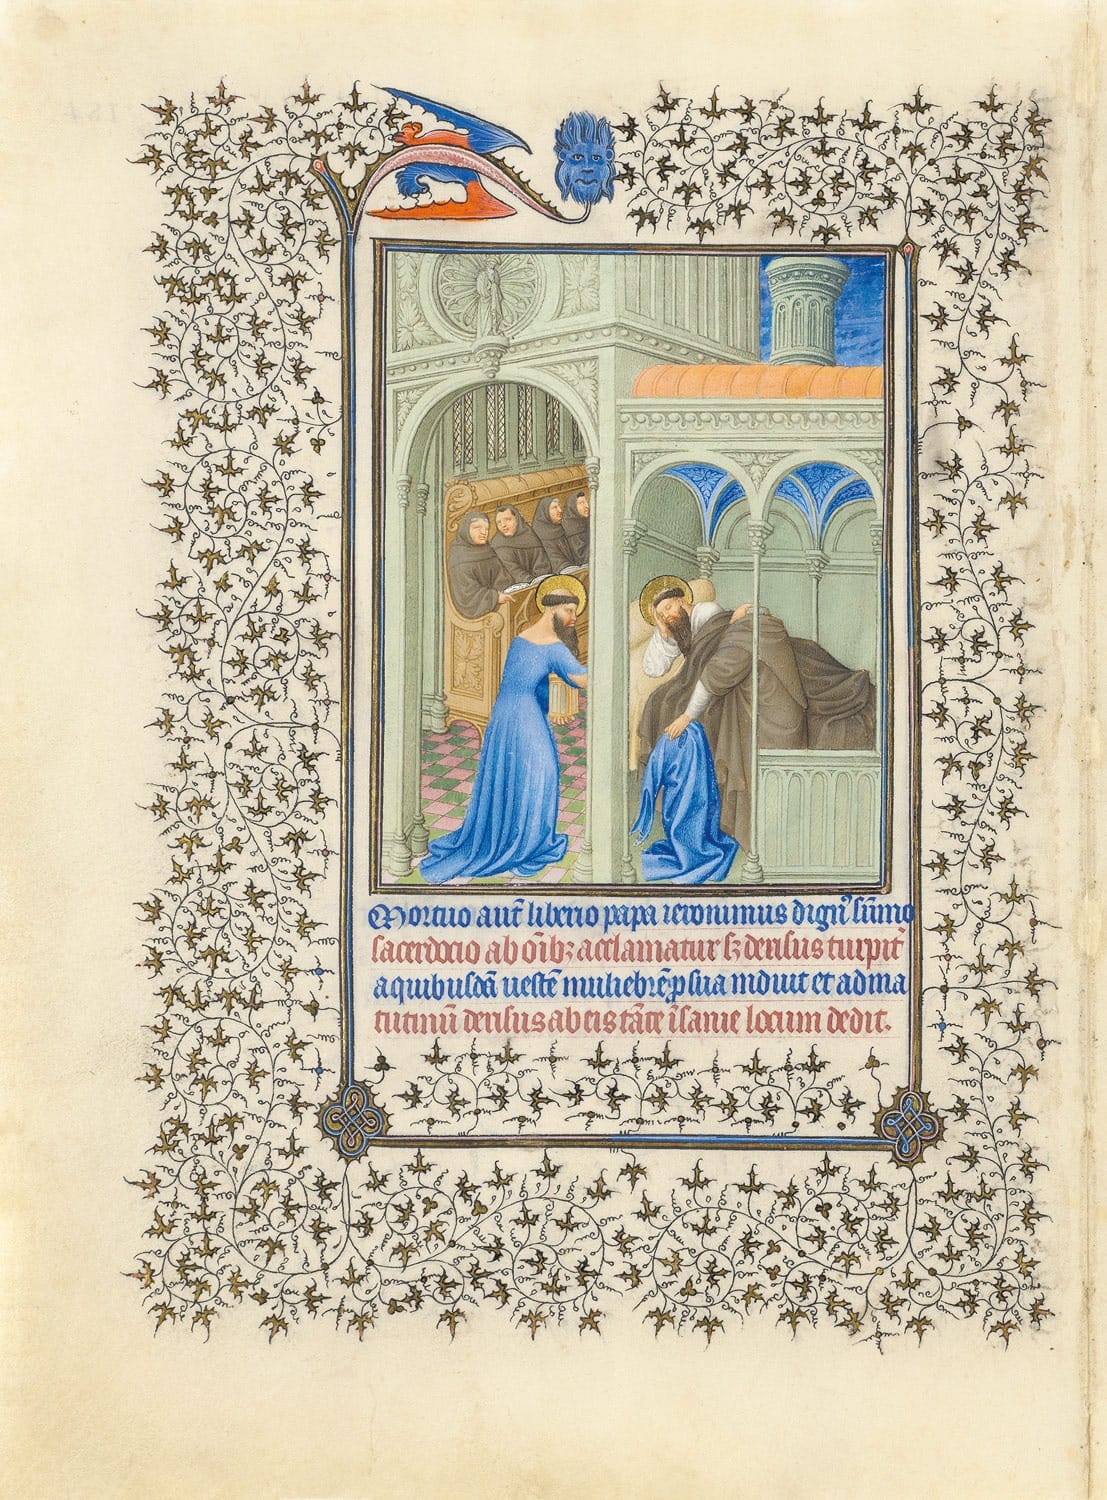 Mortuo aut̄ liberio papa ieronimus dign⁹ sūmo
sacerdocio ab oīb; acclamatur sȝ derisus turpit̄
a quibusdā uestē muliebrē ꝓ sua induit et ad ma
tutinū derisus ab eis tāte īsanie locum dedit.